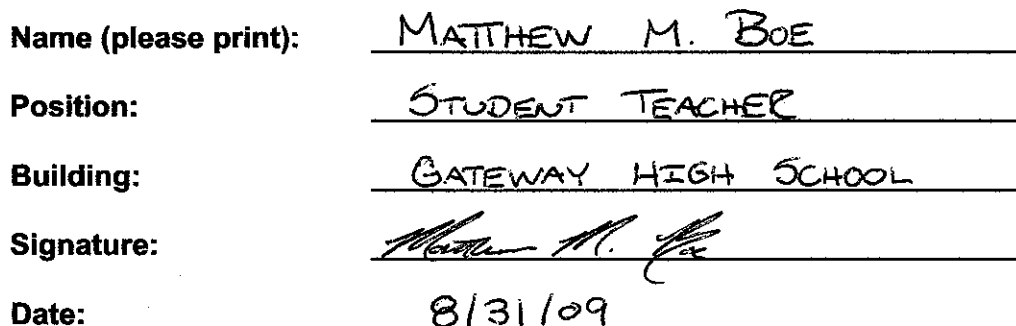 Name (please print): MATTHEW M. BOE
Position: STUDENT TEACHER
Building: GATEWAY HIGH SCHOOL
Signature: Matthew M. Boe
Date: 8/31/09